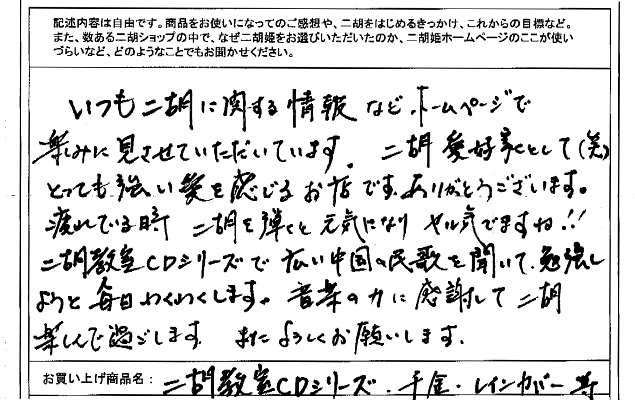 記述内容は自由です。商品をお使いになってのご感想や、二胡をはじめるきっかけ、これからの目標など。
また、数ある二胡ショップの中で、なぜ二胡姫をお選びいただいたのか、二胡姫ホームページのここが使い
づらいなど、どのようなことでもお聞かせください。
いつも二胡に関する情報など、ホームページで
楽しみに見させていただいています。二胡愛好家として(笑)
とっても強い愛を感じるお店です。ありがとうございます。
疲れている時 二胡を弾くと元気になり ヤル気でますね!!
二胡教室CDシリーズで広い中国の民歌を聞いて、勉強し
ようと毎日わくわくします。音楽の力に感謝して二胡
楽しんで過ごします。またよろしくお願いします。
お買い上げ商品名: 二胡教室CDシリーズ・千金・レインカバー 等